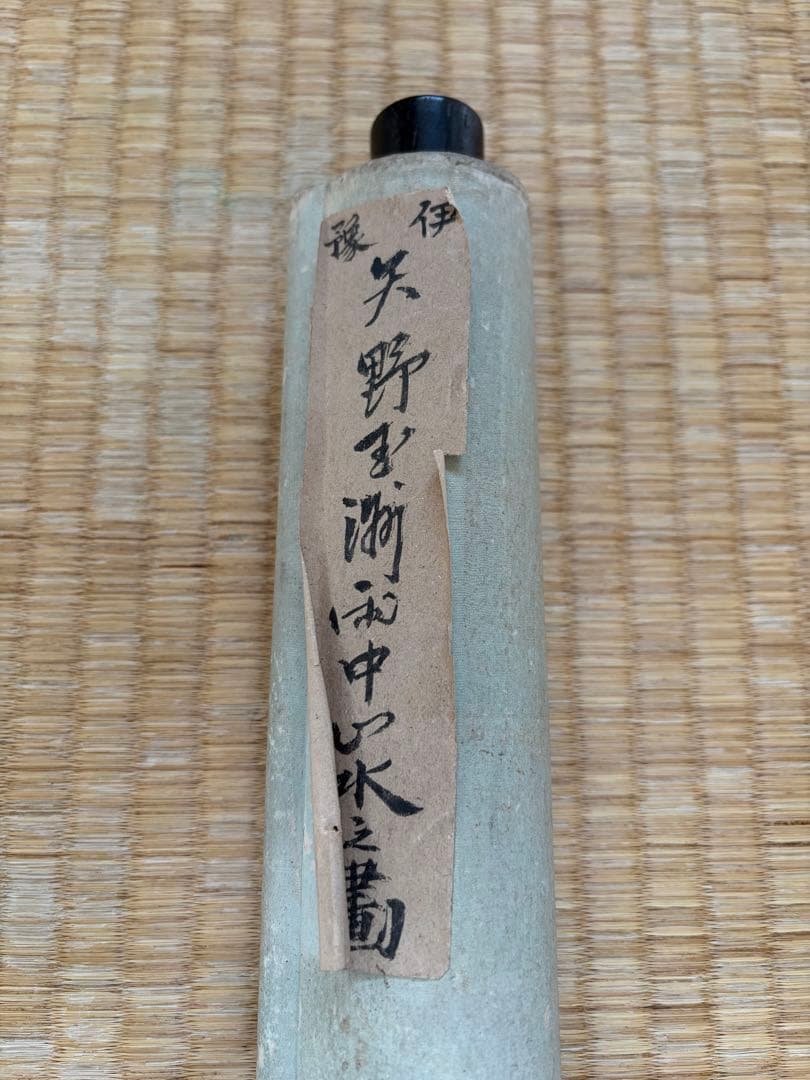 伊豫
矢野玉洲雨中山水之畫